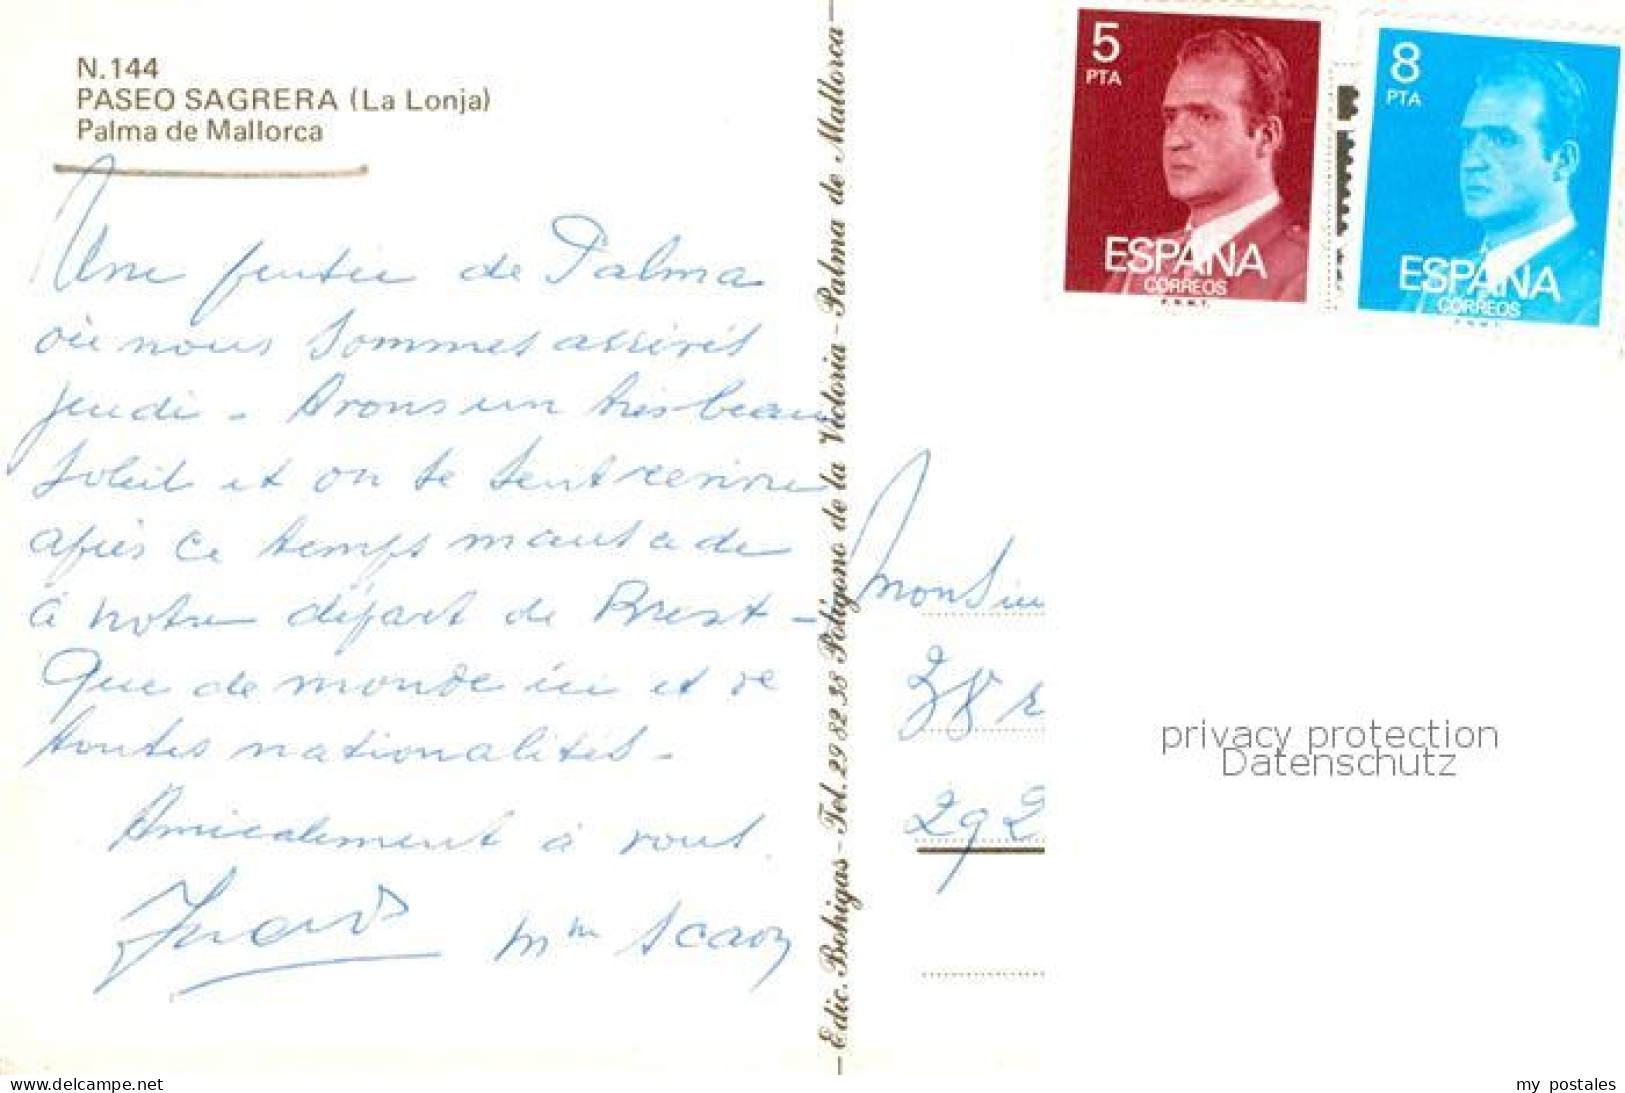 N.144
PASEO SAGRERA (La Lonja)
Palma de Mallorca
Une pensée de Palma
où nous sommes arrivés
jeudi - Avons un très beau
soleil et on se sent revivre
après ce temps maussade
à notre départ de Brest -
Que de monde ici et de
toutes nationalités -
Amicalement à vous.
Mm Scaon
Edic. Bohigas - Tel. 29 82 38 Poligono de la Victoria - Palma de Mallorca
5
PTA
ESPAÑA
CORREOS
F.N.M.T.
8
PTA
ESPAÑA
CORREOS
F.N.M.T.
Monsieu
38 r
292
privacy protection
Datenschutz
www.delcampe.net
my_postales